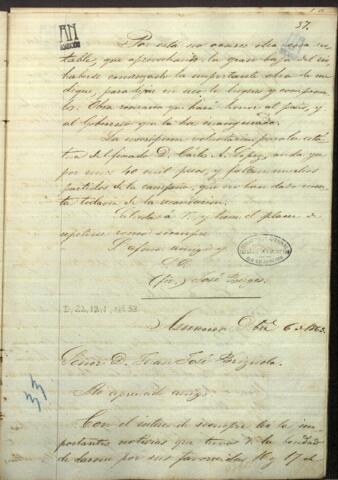 37.
Por esta no ocurre otra cosa no-
table, que aprovechando la gran baja del rio
haberse comenzado la importante obra de un
dique, para los buques y composi-
Obra romana que hará honor al país, y
al Gobierno que la ha inaugurado.
La suscripcion voluntaria para la está-
tua del finado D. Carlos A. Lopez, anda ya
por unos 40 mil pesos, y faltan muchos
partidos de la campaña, que no han dado cuen-
ta todavia de la
Saluda á V. y tiene el placer de
repetirse como siempre
S. afmo. amigo y
S. S.
(fir.) José Berges
Asuncion Dbre. 6 de 1863.
Señor D. Juan José Brizuela
Mi apreciado amigo
Con el interes de siempre he leido im-
portantes noticias que tuvo V. la bondad
de darme por sus favorecidas 16 y 17 de